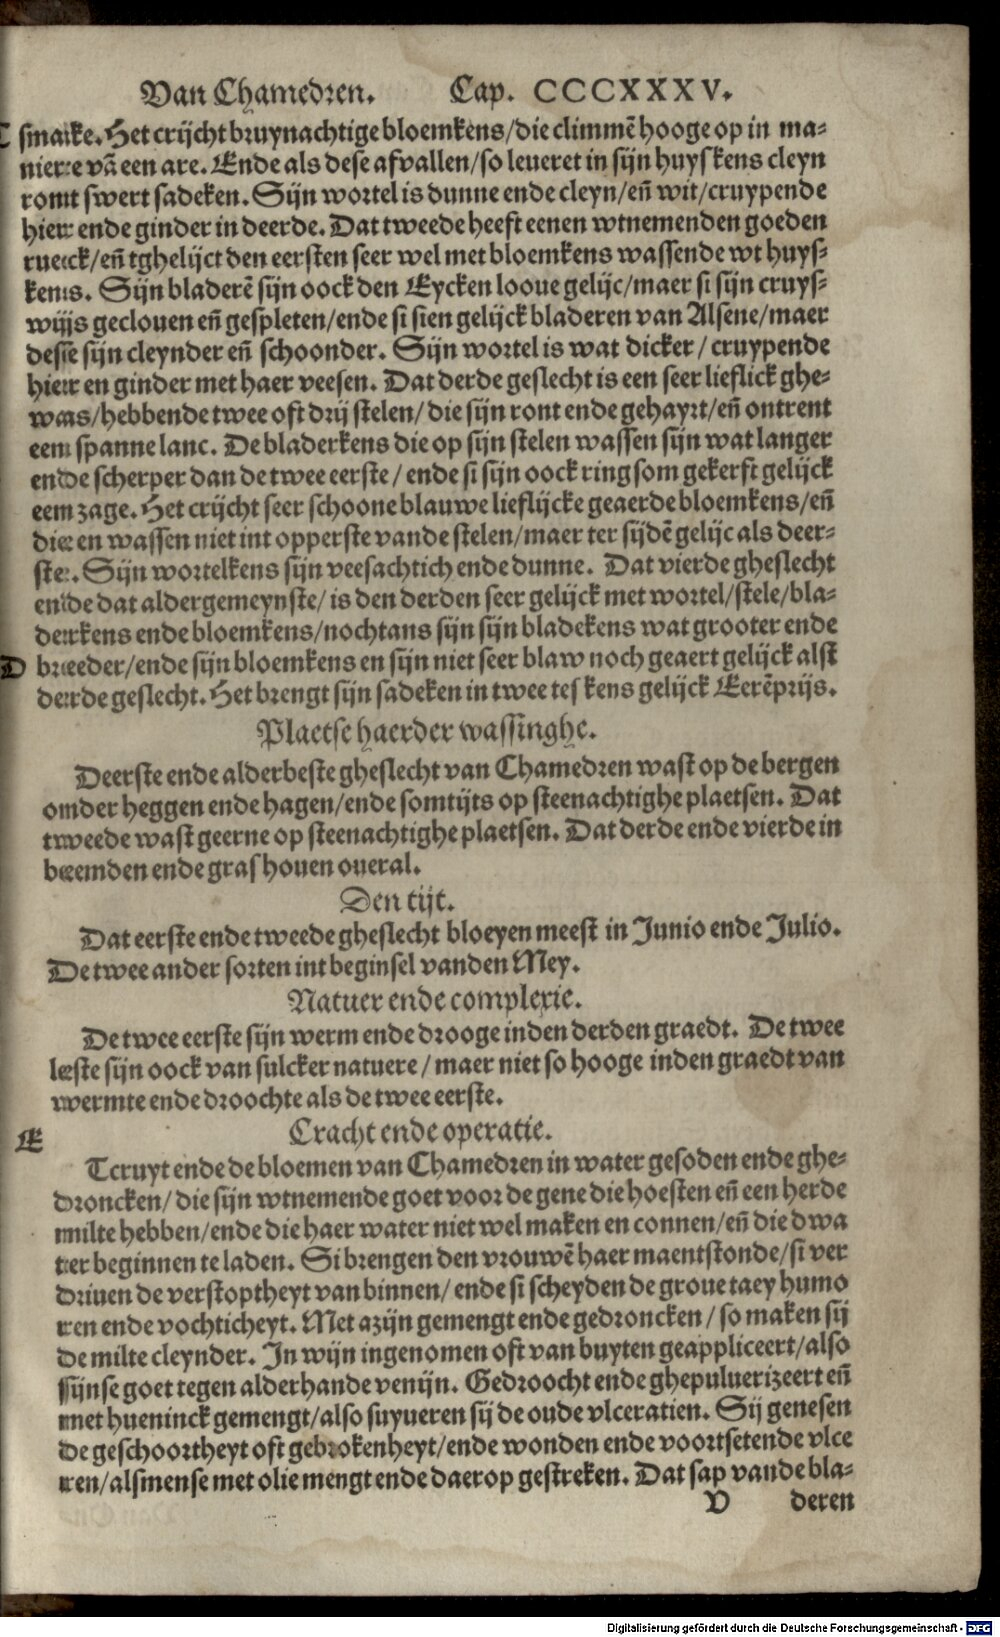 Van Chamedren. Cap. CCCXXXV.
smake. Het crijcht bruynachtige bloemkens/die climmē hooge op in ma-
niere vā een are. Ende als dese afvallen/so leueret in sijn huyskens cleyn
ront swert sadeken. Sijn wortel is dunne ende cleyn/eñ wit/cruypende
hier ende ginder in deerde. Dat tweede heeft eenen wtnemenden goeden
rueck/eñ tghelijct den eersten seer wel met bloemkens wassende wt huys-
kens. Sijn bladerē sijn oock den Eycken looue gelijc/maer si sijn cruys-
wijs geclouen eñ gespleten/ende si sien gelijck bladeren van Alsene/maer
dese sijn cleynder eñ schoonder. Sijn wortel is wat dicker/cruypende
hier en ginder met haer veesen. Dat derde geslecht is een seer lieflick ghe-
was/hebbende twee oft drij stelen/die sijn ront ende gehayrt/eñ ontrent
een spanne lanc. De bladerkens die op sijn stelen wassen sijn wat langer
ende scherper dan de twee eerste/ende si sijn oock ringsom gekerft gelijck
een zage. Het crijcht seer schoone blauwe lieflijcke geaerde bloemkens/eñ
die en wassen niet int opperste vande stelen/maer ter sijdē gelijc als deer-
ste. Sijn wortelkens sijn veesachtich ende dunne. Dat vierde gheslecht
ende dat aldergemeynste/is den derden seer gelijck met wortel/stele/bla-
derkens ende bloemkens/nochtans sijn sijn bladekens wat grooter ende
D breeder/ende sijn bloemkens en sijn niet seer blaw noch geaert gelijck alst
derde geslecht. Het brengt sijn sadeken in twee teskens gelijck Eerēprijs.
Plaetse haerder wassinghe.
Deerste ende alderbeste gheslecht van Chamedren wast op de bergen
onder heggen ende hagen/ende somtijts op steenachtighe plaetsen. Dat
tweede wast geerne op steenachtighe plaetsen. Dat derde ende vierde in
beemden ende gras houen oueral.
Den tijt.
Dat eerste ende tweede gheslecht bloeyen meest in Junio ende Julio.
De twee ander sorten int beginsel vanden Mey.
Natuer ende complexie.
De twee eerste sijn werm ende drooge inden derden graedt. De twee
leste sijn oock van sulcker natuere/maer niet so hooge inden graedt van
wermte ende droochte als de twee eerste.
E Cracht ende operatie.
Tcruyt ende de bloemen van Chamedren in water gesoden ende ghe-
droncken/die sijn wtnemende goet voor de gene die hoesten eñ een herde
milte hebben/ende die haer water niet wel maken en connen/eñ die dwa
ter beginnen te laden. Si brengen den vrouwē haer maentstonde/si ver
driuen de verstoptheyt van binnen/ende si scheyden de groue taey humo
ren ende vochticheyt. Met azijn gemengt ende gedroncken/so maken sij
de milte cleynder. In wijn ingenomen oft van buyten geappliceert/also
sijnse goet tegen alderhande venijn. Gedroocht ende ghepuluerizeert eñ
met hueninck gemengt/also suyueren sij de oude vlceratien. Sij genesen
de geschoortheyt oft gebrokenheyt/ende wonden ende voortsetende vlce
ren/alsmense met olie mengt ende daerop gestreken. Dat sap vande bla-
V deren
Digitalisierung gefördert durch die Deutsche Forschungsgemeinschaft - DFG